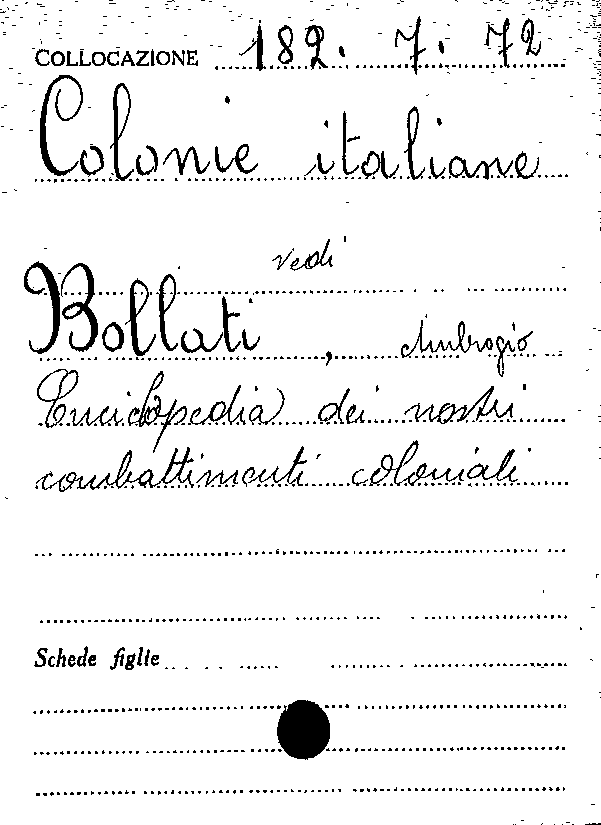 COLLOCAZIONE 182. 7. 72
Colonie italiane
vedi
Bollati, Ambrogio
Enciclopedia dei nostri
combattimenti coloniali
Schede figlie